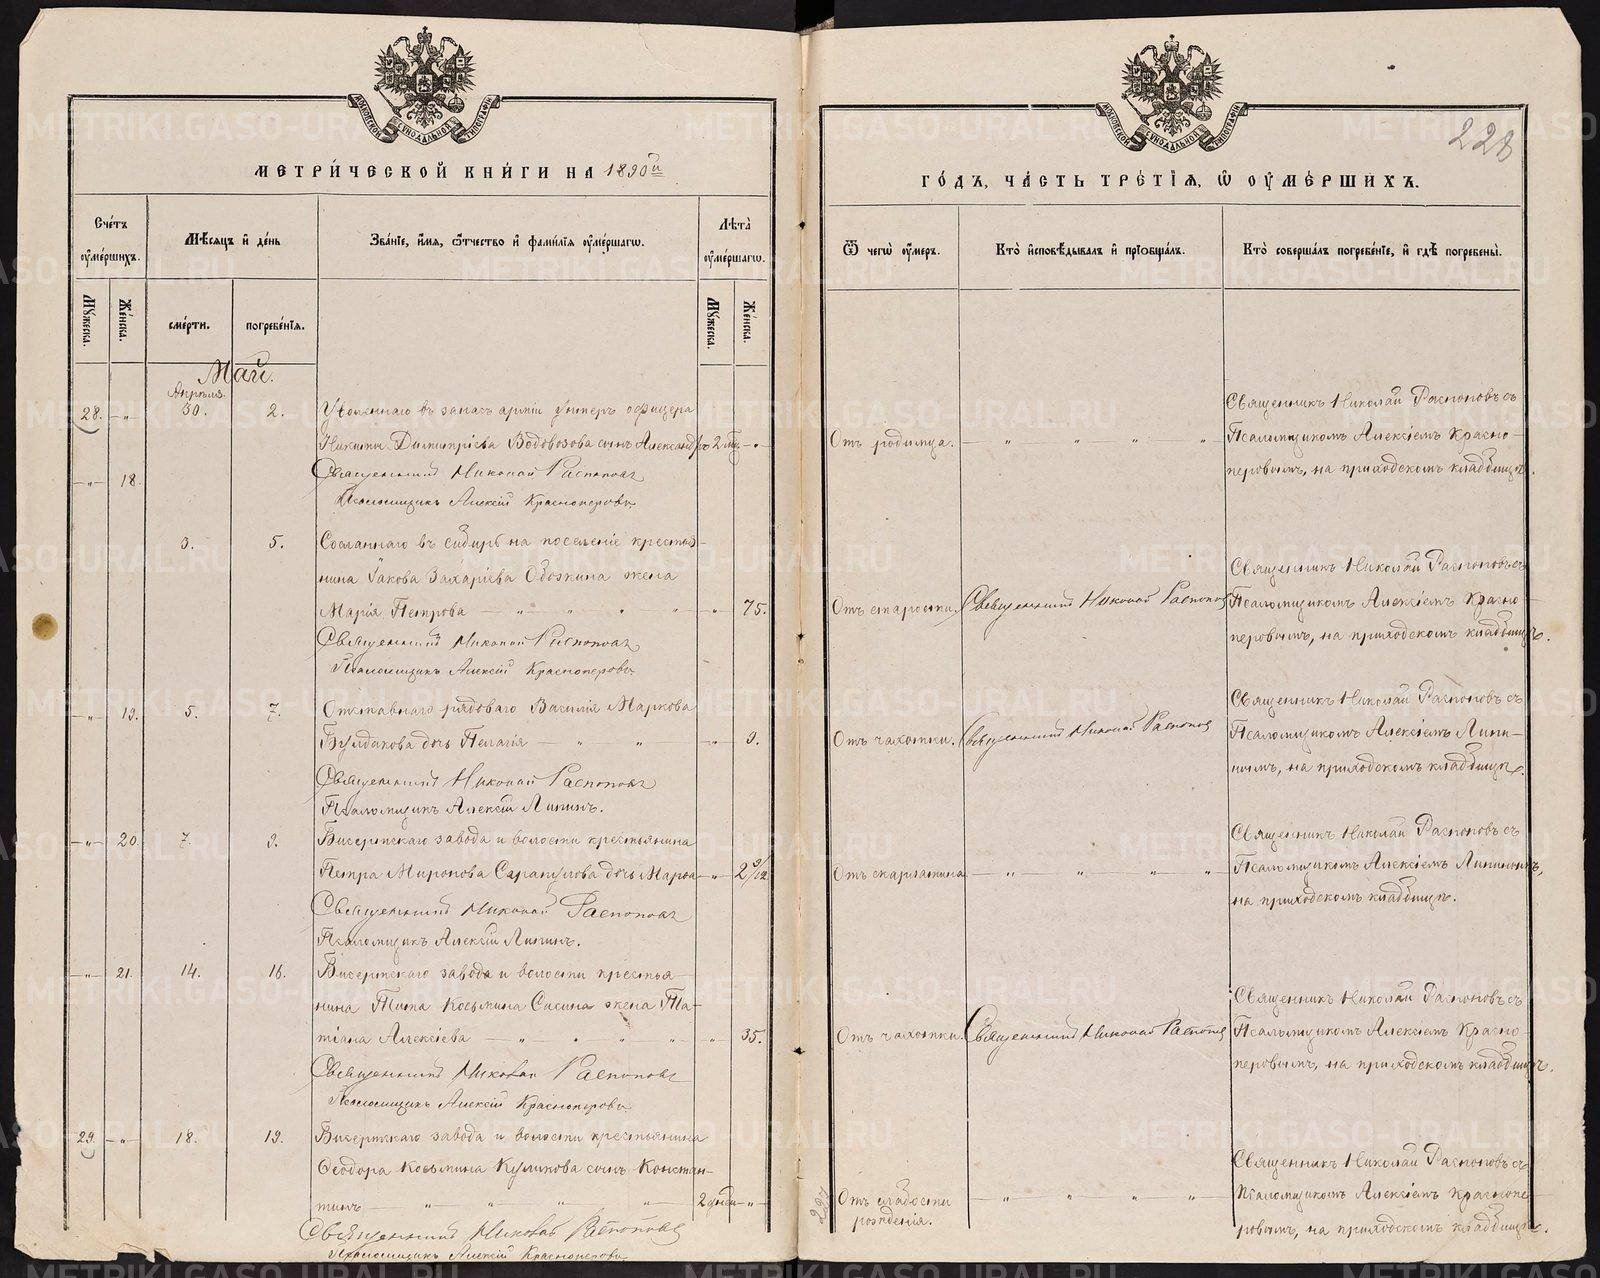 МОСКОВСКОЙ СѴНОДАЛЬНОЙ ТИПОГРАФІИ
МЕТРИ́ЧЕСКОЙ КНИ́ГИ НА 1890й
Сче́тъ ᲂу҆ме́ршихъ.
Мѣ́сяцъ и҆ де́нь
Зва́нїе, и҆́мя, ѻ҆́тчество и҆ фами́лїя ᲂу҆ме́ршагѡ.
Лѣ́та ᲂу҆ме́ршагѡ.
Мꙋ́жеска.
Же́нска.
сме́рти.
погребе́нїя.
Мꙋ́жеска.
Же́нска.
Май.
Апрѣля
28. -„- 30. 2. Уволеннаго въ запасъ арміи унтеръ офицера
Никиты Димитріева Водовозова сынъ Александръ 2 -„-
-„- 18. Священникъ Николай Распоповъ
Псаломщикъ Алексій Красноперовъ.
3. 5. Сосланнаго въ Сибирь на поселеніе крестья-
нина Іакова Захаріева Обоскина жена
Марія Петрова — „ „ „ „ -„- 75.
Священникъ Николай Распоповъ
Псаломщикъ Алексій Красноперовъ.
-„- 19. 5. 7. Отставнаго рядоваго Василія Маркова
Булдакова дочь Пелагія — „ „ -„- 9.
Священникъ Николай Распоповъ
Псаломщикъ Алексій Липинъ.
-„- 20. 7. 9. Бисертскаго завода и волости крестьянина
Петра Миронова Сарапулова дочь Марѳа -„- 2 9/12
Священникъ Николай Распоповъ
Псаломщикъ Алексій Липинъ.
-„- 21. 14. 16. Бисертскаго завода и волости крестья-
нина Тита Косьмина Сысина жена Та-
тіана Алексіева — „ „ „ „ „ 35.
Священникъ Николай Распоповъ
Псаломщикъ Алексій Красноперовъ
29. -„- 18. 19. Бисертскаго завода и волости крестьянина
Ѳеодора Косьмина Куликова сынъ Констан-
тинъ — „ „ „ „ 2 дней -„-
Священникъ Николай Распоповъ
Псаломщикъ Алексій Красноперовъ
МОСКОВСКОЙ СѴНОДАЛЬНОЙ ТИПОГРАФІИ
228
ГО́ДЪ, ЧА́СТЬ ТРЕ́ТІЯ, Ѡ҆ ОУ҆МЕ́РШИХЪ.
Ѿ чегѡ̀ ᲂу҆́меръ.
Кто̀ и҆сповѣ́дывалъ и҆ прїѡбща́лъ.
Кто̀ соверша́лъ погребе́нїе, и҆ гдѣ̀ погребены̀.
Священникъ Николай Распоповъ съ
Отъ родимца. — „ „ „ „ Псаломщикомъ Алексіемъ Красно-
перовымъ, на приходскомъ кладбищѣ.
Священникъ Николай Распоповъ съ
Отъ старости. Священникъ Николай Распоповъ Псаломщикомъ Алексіемъ Красно-
перовымъ, на приходскомъ кладбищѣ.
Священникъ Николай Распоповъ съ
Отъ чахотки. Священникъ Николай Распоповъ Псаломщикомъ Алексіемъ Липи-
нымъ, на приходскомъ кладбищѣ.
Священникъ Николай Распоповъ съ
Отъ скарлатина — „ „ „ „ Псаломщикомъ Алексіемъ Липинымъ,
на приходскомъ кладбищѣ.
Священникъ Николай Распоповъ съ
Отъ чахотки. Священникъ Николай Распоповъ Псаломщикомъ Алексіемъ Красно-
перовымъ, на приходскомъ кладбищѣ.
Священникъ Николай Распоповъ съ
Отъ слабости — „ „ „ „ Псаломщикомъ Алексіемъ Краснопе-
рожденія. ровымъ, на приходскомъ кладбищѣ.
METRIKI.GASO-URAL.RU